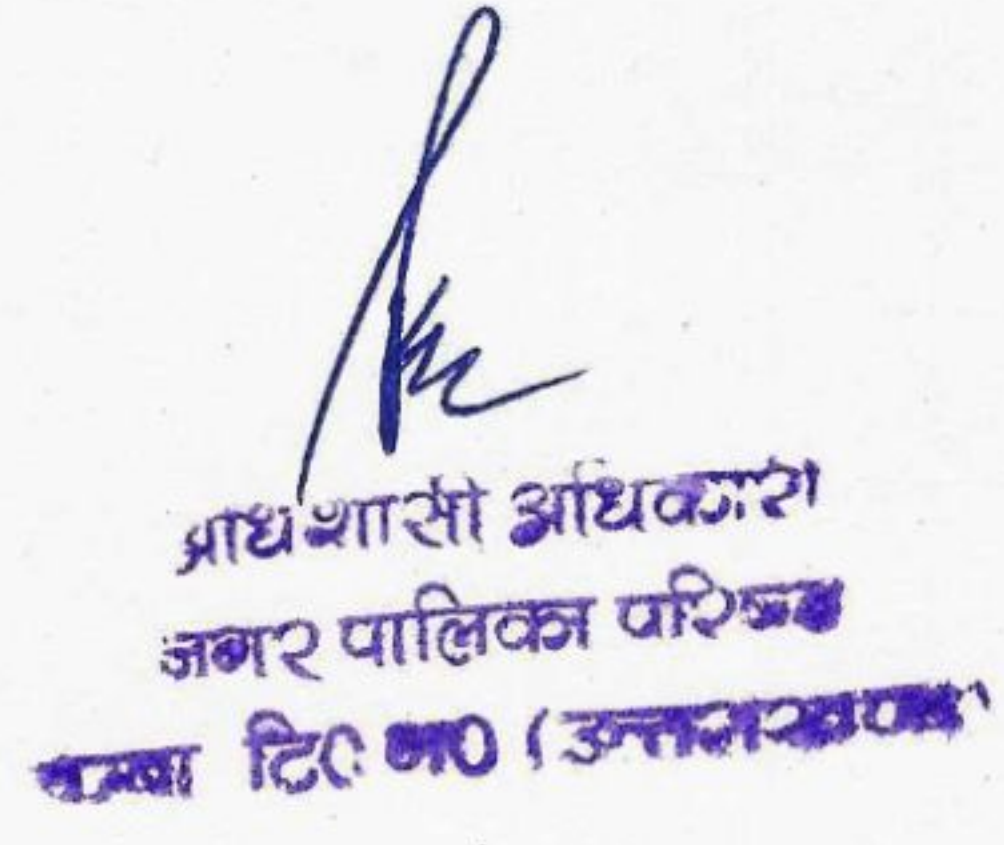 अधिशासी अधिकारी
नगर पालिका परिषद
चम्बा टि० ग० (उत्तराखण्ड)